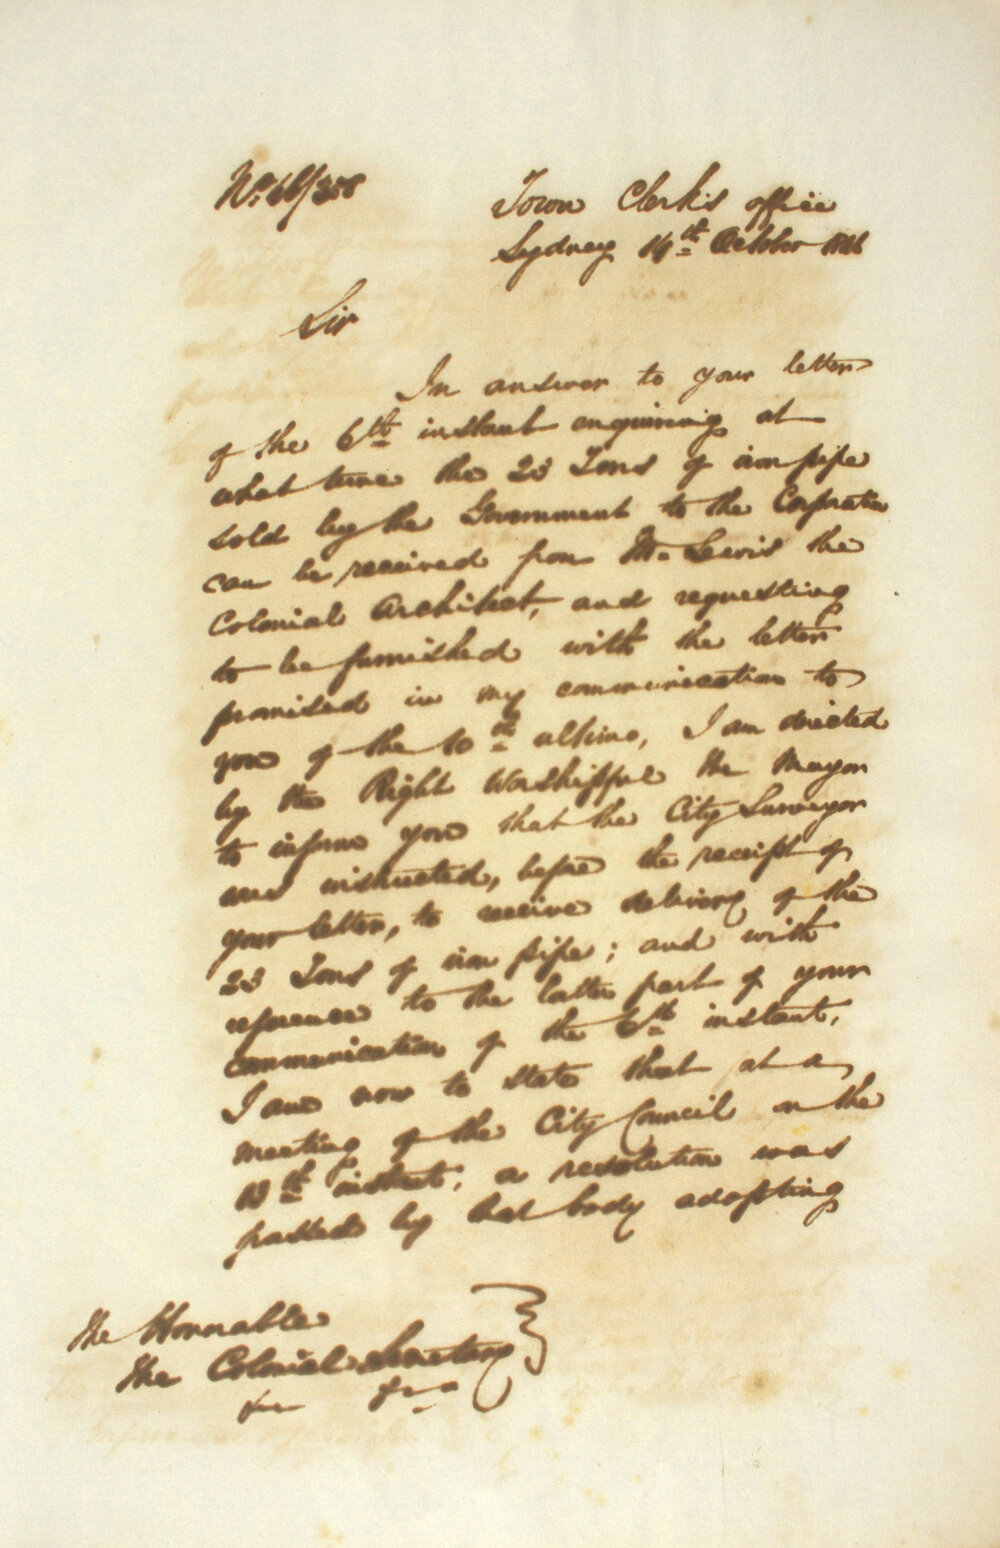 No. 46/358
Town Clerk's office
Sydney 14th October 1846
Sir
In answer to your letter
of the 6th instant enquiring at
what time the 23 Tons of iron pipe
sold by the Government to the Corporation
can be received from Mr. Lewis the
Colonial Architect, and requesting
to be furnished with the letter
promised in my communication to
you of the 10th ultimo, I am directed
by the Right Worshipful the Mayor
to inform you that the City Surveyor
was instructed, before the receipt of
your letter, to receive delivery of the
23 Tons of iron pipe; and with
reference to the latter part of your
communication of the 6th instant,
I am now to state that at a
meeting of the City Council on the
instant; a resolution was
passed by that body adopting
The Honorable
The Colonial Secretary